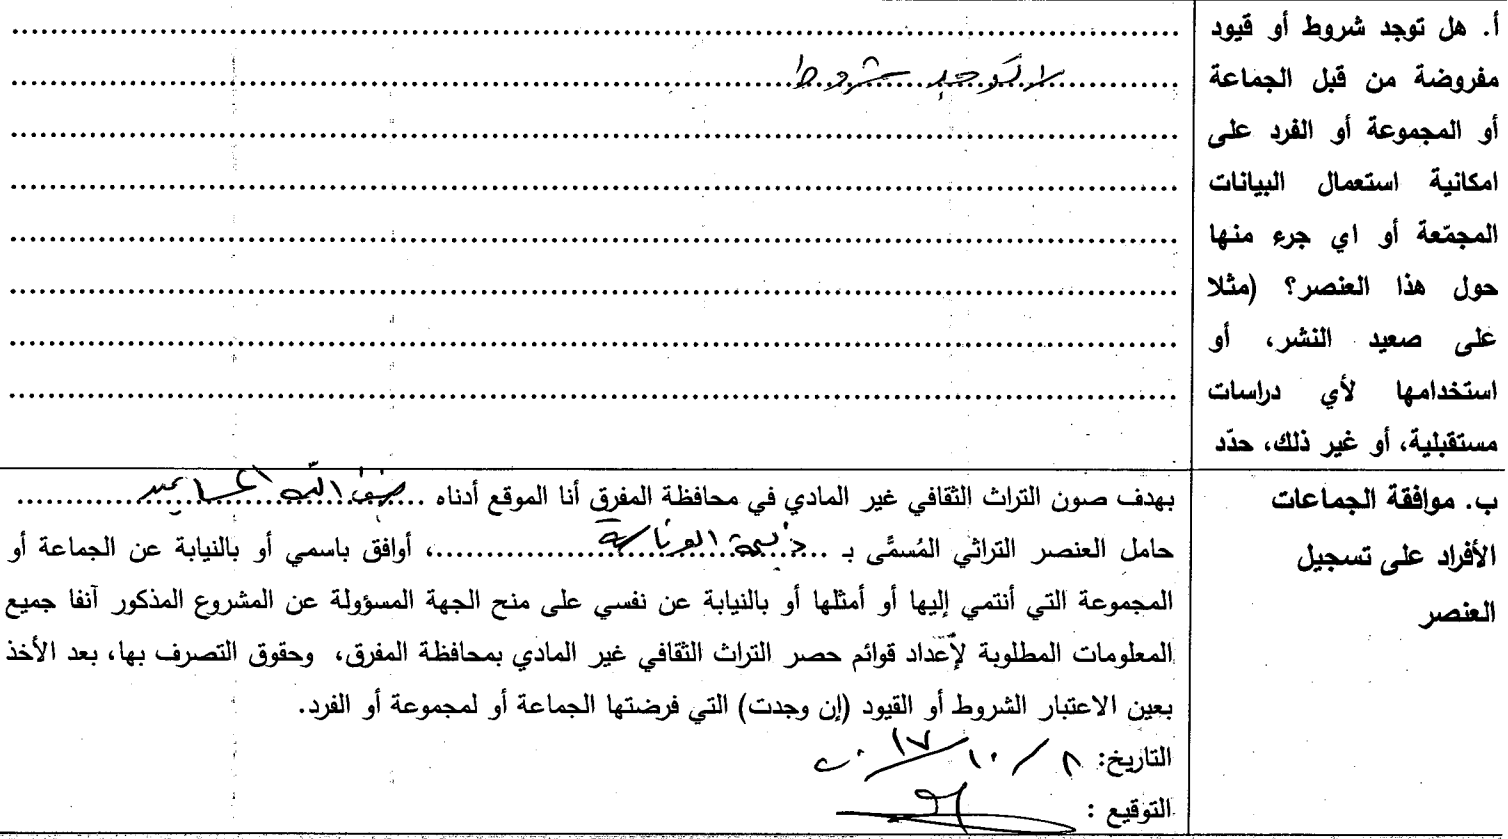 أ. هل توجد شروط أو قيود
مفروضة من قبل الجماعة
أو المجموعة أو الفرد على
امكانية استعمال البيانات
المجمّعة أو اي جرء منها
حول هذا العنصر؟ (مثلا
على صعيد النشر، أو
استخدامها لأي دراسات
مستقبلية، أو غير ذلك، حدّد
لا توجد شروط
ب. موافقة الجماعات
الأفراد على تسجيل
العنصر
بهدف صون التراث الثقافي غير المادي في محافظة المفرق أنا الموقع أدناه
حامل العنصر التراثي المُسمَّى بـ ........، أوافق باسمي أو بالنيابة عن الجماعة أو
المجموعة التي أنتمي إليها أو أمثلها أو بالنيابة عن نفسي على منح الجهة المسؤولة عن المشروع المذكور آنفا جميع
المعلومات المطلوبة لإعداد قوائم حصر التراث الثقافي غير المادي بمحافظة المفرق، وحقوق التصرف بها، بعد الأخذ
بعين الاعتبار الشروط أو القيود (إن وجدت) التي فرضتها الجماعة أو لمجموعة أو الفرد.
التاريخ: ٨ / ١٠ / ٢٠١٧
التوقيع :